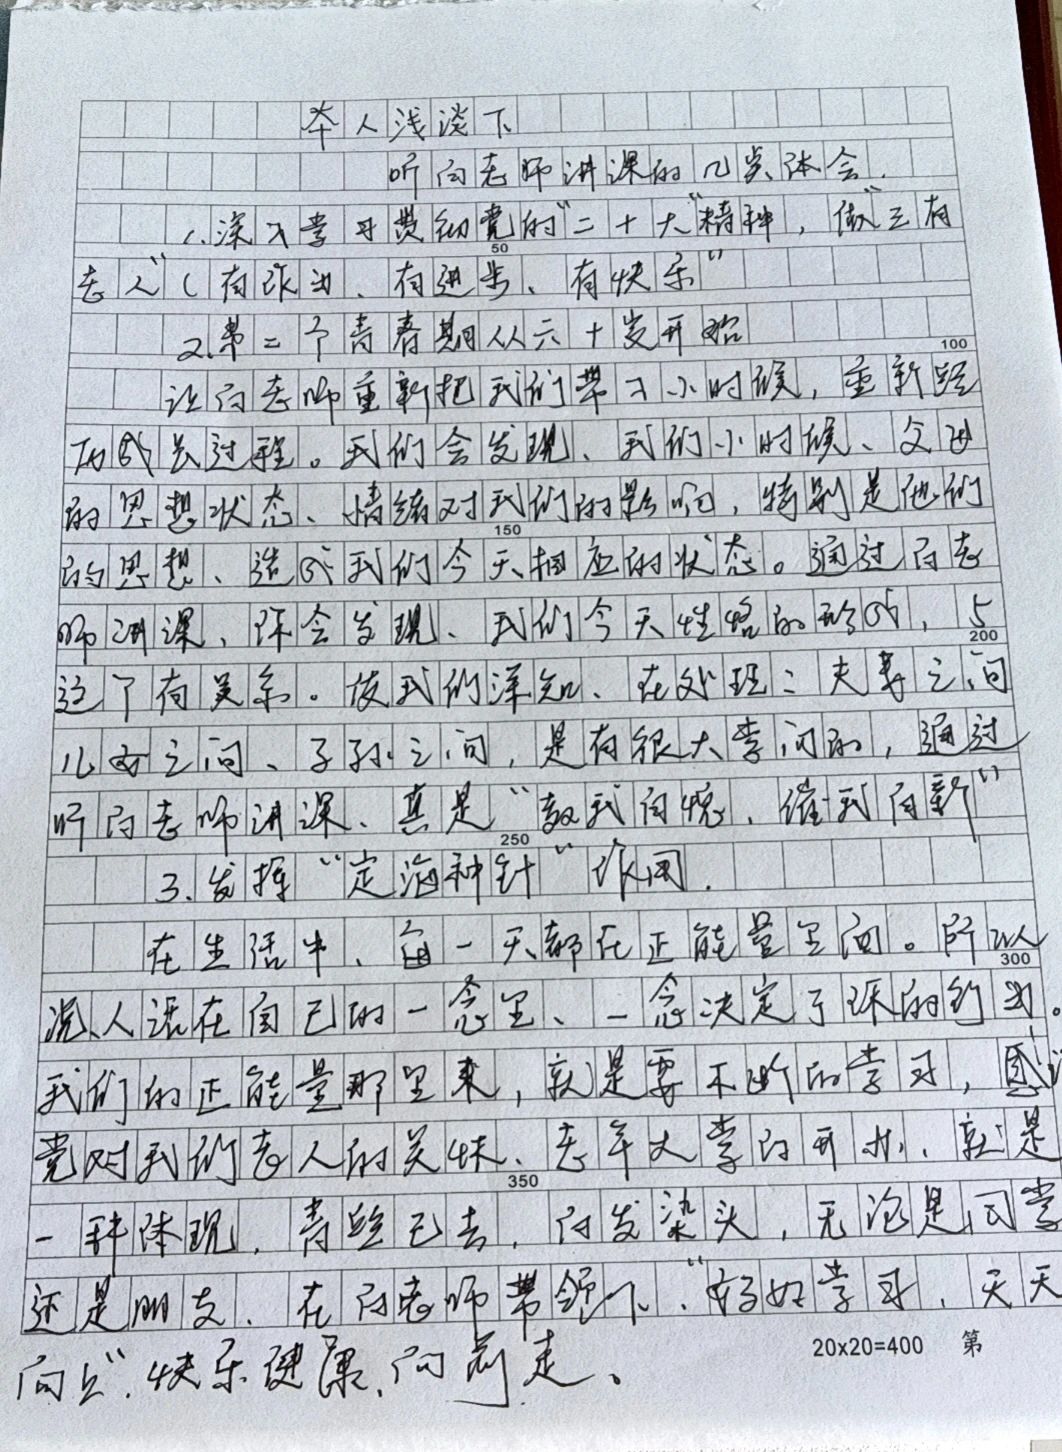 本人浅谈下
听向老师讲课的几点体会.
1.深入学习贯彻党的“二十大”精神，做“三有
老人”（有作为、有进步、有快乐”
50
2.第二个青春期从六十岁开始
100
让向老师重新把我们带入小时候，重新经
历成长过程。我们会发现、我们小时候、父母
的思想状态、情绪对我们的影响，特别是他们
150
的思想、造成我们今天相应的状态。通过向老
师讲课、你会发现、我们今天性格的形成，与
200
这个有关系。使我们深知、在处理：夫妻之间
儿女之间、子孙之间，是有很大学问的，通过
听向老师讲课、真是“教我自愧、催我自新”
250
3.发挥“定海神针”作用.
在生活中、每一天都在正能量里面。所以
300
说、人活在自己的一念里、一念决定了你的行为。
我们的正能量那里来，就是要不断的学习，感谢
党对我们老人的关怀、老年大学的开办、就是
350
一种体现，青丝已去，白发染头，无论是同学
还是朋友、在向老师带领下、“好好学习、天天
向上”、快乐健康、向前走、
20x20=400 第